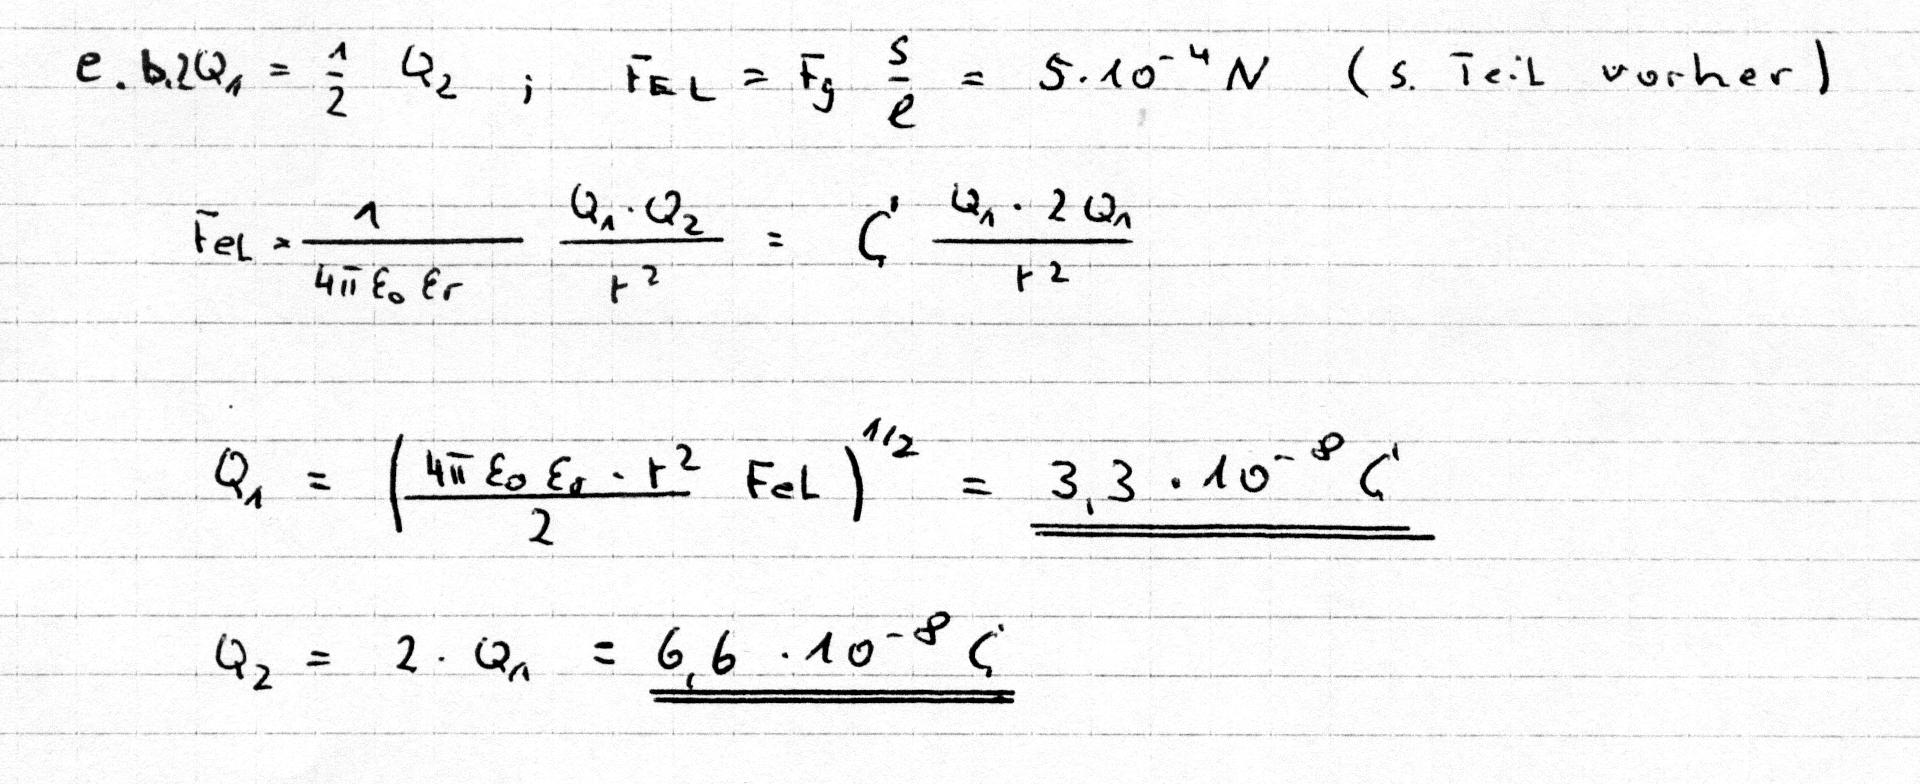 e.b.2 Q₁ = 1/2 Q₂ ; F_EL = F_g s/l = 5·10⁻⁴ N (s. Teil vorher)
F_eL = 1/(4π ε₀ εr) (Q₁·Q₂)/r² = C (Q₁·2Q₁)/r²
Q₁ = ((4π ε₀ εr · r²)/2 FeL)^(1/2) = 3,3 · 10⁻⁸ C
Q₂ = 2 · Q₁ = 6,6 · 10⁻⁸ C